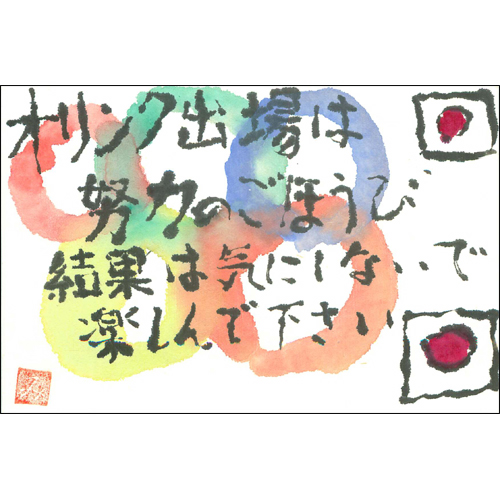 オリンク出場は
努力のごほうび
結果は気にしないで
楽しんで下さい